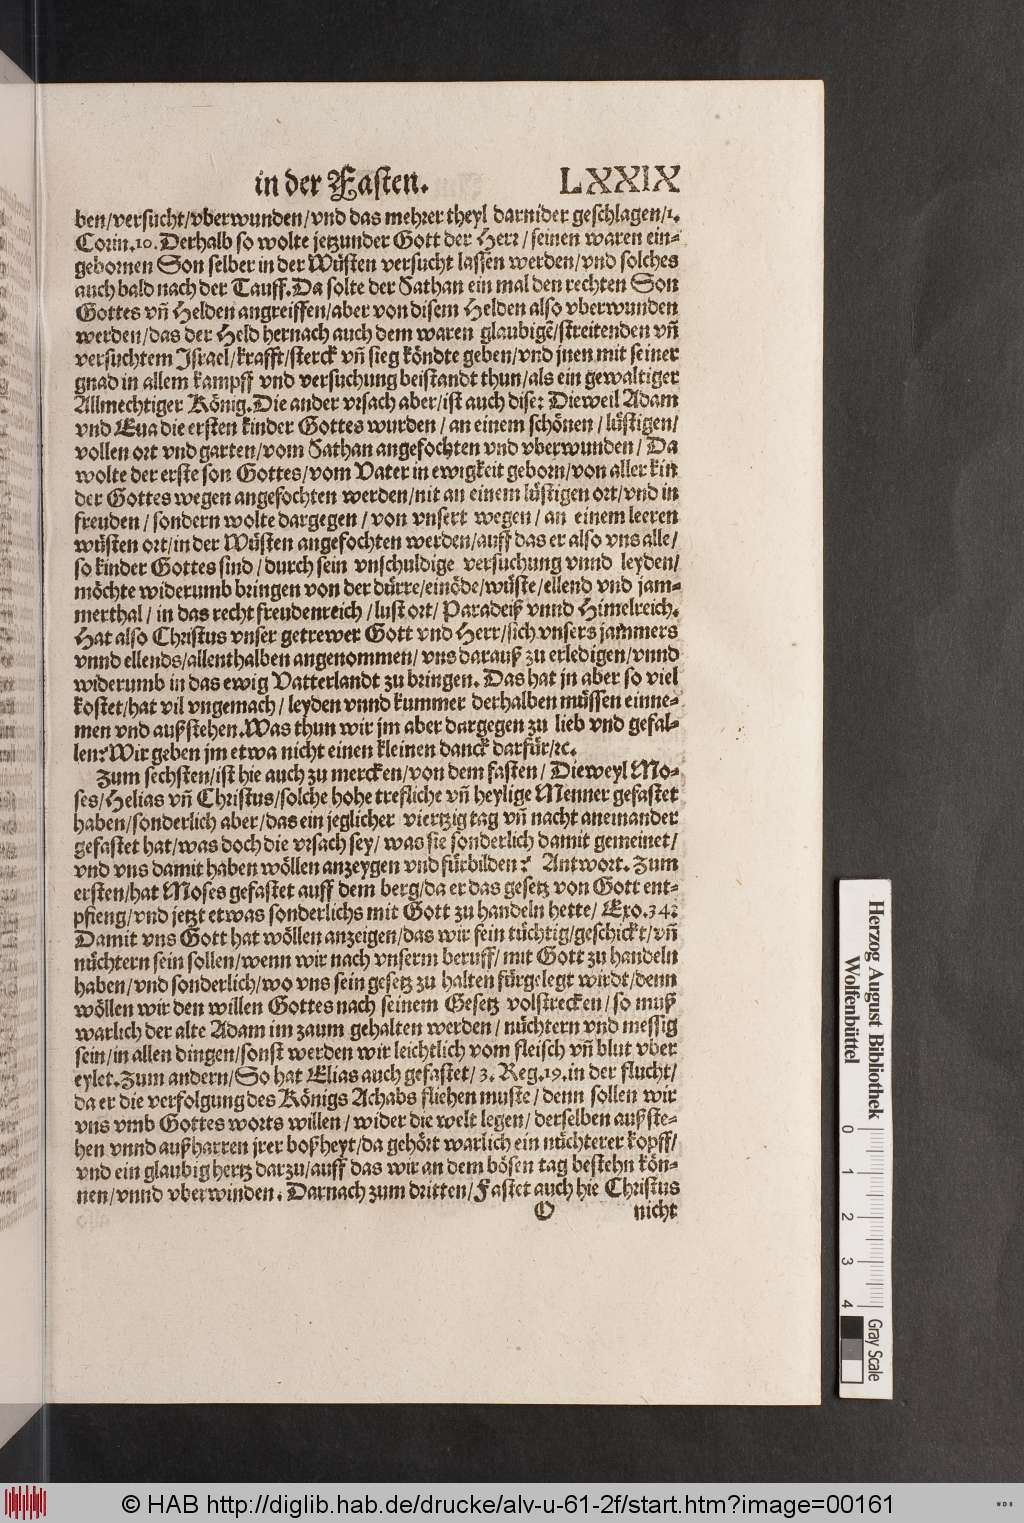 in der Fasten. LXXIX
ben/versucht/vberwunden/vnd das mehrer theyl darnider geschlagen/1.
Corin.10. Derhalb so wolte jetzunder Gott der Herr/seinen waren ein-
gebornen Son selber in der Wüsten versucht lassen werden/vnd solches
auch bald nach der Tauff. Da solte der Sathan ein mal den rechten Son
Gottes vñ Helden angreiffen/aber von disem Helden also vberwunden
werden/das der Held hernach auch dem waren glaubigẽ/streitenden vñ
versuchtem Israel/krafft/sterck vñ sieg köndte geben/vnd jnen mit seiner
gnad in allem kampff vnd versuchung beistandt thun/als ein gewaltiger
Allmechtiger König. Die ander vrsach aber/ist auch dise: Dieweil Adam
vnd Eua die ersten kinder Gottes wurden/an einem schönen/lüstigen/
vollen ort vnd garten/vom Sathan angefochten vnd vberwunden/Da
wolte der erste son Gottes/vom Vater in ewigkeit geborn/von aller kin
der Gottes wegen angefochten werden/nit an einem lüstigen ort/vnd in
freuden/sondern wolte dargegen/von vnsert wegen/an einem leeren
wüsten ort/in der Wüsten angefochten werden/auff das er also vns alle/
so kinder Gottes sind/durch sein vnschuldige versuchung vnnd leyden/
möchte widerumb bringen von der dürre/einöde/wüste/ellend vnd jam-
merthal/in das recht freudenreich/lust ort/Paradeiß vnnd Himelreich.
Hat also Christus vnser getrewer Gott vnd Herr/sich vnsers jammers
vnnd ellends/allenthalben angenommen/vns darauß zu erledigen/vnnd
widerumb in das ewig Vatterlandt zu bringen. Das hat jn aber so viel
kostet/hat vil vngemach/leyden vnnd kummer derhalben müssen einne-
men vnd außstehen. Was thun wir jm aber dargegen zu lieb vnd gefal-
len? Wir geben jm etwa nicht einen kleinen danck darfür/ꝛc.
Zum sechsten/ist hie auch zu mercken/von dem fasten/Dieweyl Mo-
ses/Helias vñ Christus/solche hohe trefliche vñ heylige Menner gefastet
haben/sonderlich aber/das ein jeglicher viertzig tag vñ nacht aneinander
gefastet hat/was doch die vrsach sey/was sie sonderlich damit gemeinet/
vnd vns damit haben wöllen anzeygen vnd fürbilden? Antwort. Zum
ersten/hat Moses gefastet auff dem berg/da er das gesetz von Gott ent-
pfieng/vnd jetzt etwas sonderlichs mit Gott zu handeln hette/Exo.34:
Damit vns Gott hat wöllen anzeigen/das wir fein tüchtig/geschickt/vñ
nüchtern sein sollen/wenn wir nach vnserm beruff/mit Gott zu handeln
haben/vnd sonderlich/wo vns sein gesetz zu halten fürgelegt wirdt/denn
wöllen wir den willen Gottes nach seinem Gesetz volstrecken/so muß
warlich der alte Adam im zaum gehalten werden/nüchtern vnd messig
sein/in allen dingen/sonst werden wir leichtlich vom fleisch vñ blut vber
eylet. Zum andern/So hat Elias auch gefastet/3. Reg.19. in der flucht/
da er die verfolgung des Königs Achabs fliehen muste/denn sollen wir
vns vmb Gottes worts willen/wider die welt legen/derselben außste-
hen vnnd außharren jrer boßheyt/da gehört warlich ein nüchterer kopff/
vnd ein glaubig hertz darzu/auff das wir an dem bösen tag bestehn kön-
nen/vnnd vberwinden. Darnach zum dritten/Fastet auch hie Christus
O nicht
Herzog August Bibliothek
Wolfenbüttel
0 1 2 3 4
Gray Scale
© HAB http://diglib.hab.de/drucke/alv-u-61-2f/start.htm?image=00161
WDB